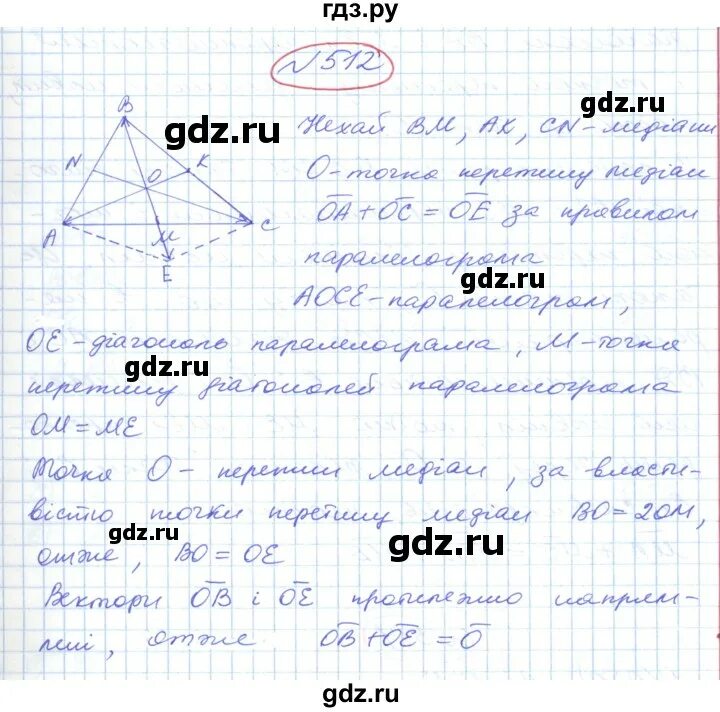 гдз.ру
№512
B
gdz.ru
Нехай BM, AK, CN - медіани
N
O
K
O - точка перетину медіан
A
M
C
OA + OC = OE за правилом
E
паралелограма
gdz.ru
AOCE - паралелограм,
OE - діагональ паралелограма, M - точка
gdz.ru
перетину діагоналей паралелограма
OM = ME
Точка O - перетин медіан, за власти-
вістю точки перетину медіан BO = 2OM,
gdz.ru
gdz.ru
отже, BO = OE
Вектори OB і OE протилежно напрям-
лені, отже OB + OE = O
gdz.ru